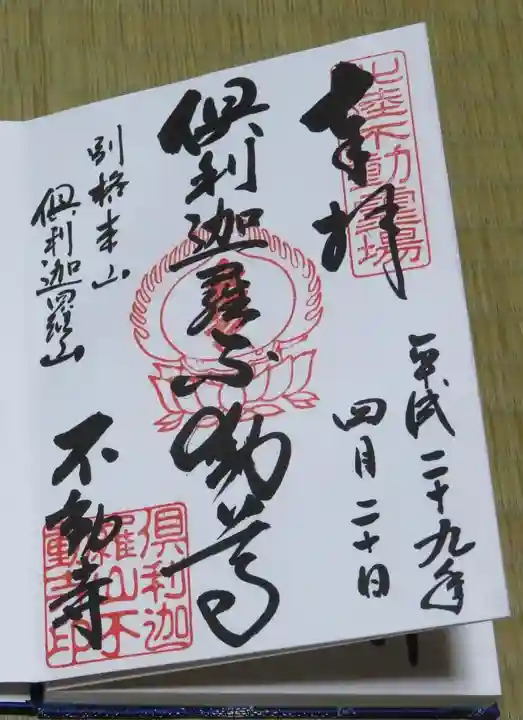 奉拝
北陸不動霊場
平成二十九年
四月二十日
倶利迦羅不動尊
別格本山
倶利迦羅山
不動寺
倶利迦
羅山不
動寺印